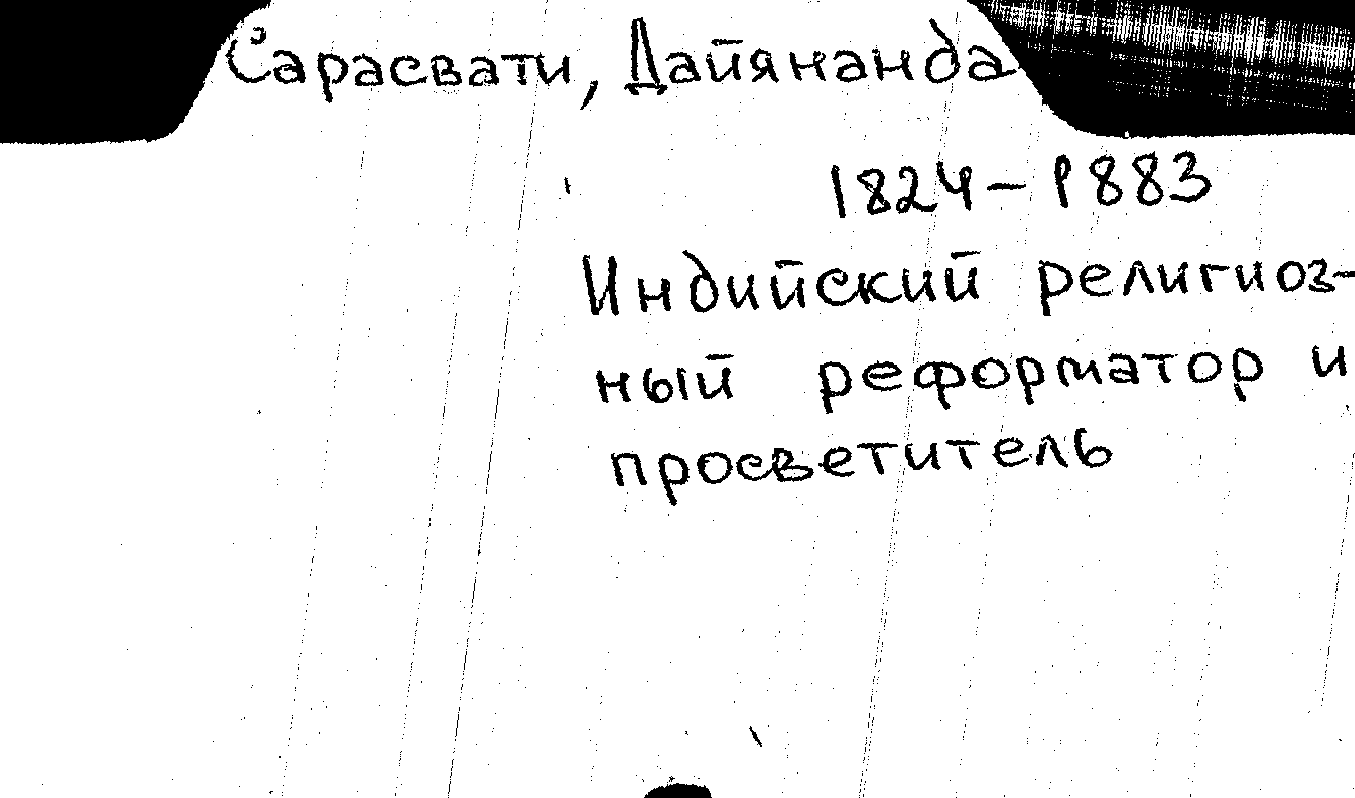 Сарасвати, Дайянанда
1824 – 1883
Индийский религиоз-
ный реформатор и
просветитель